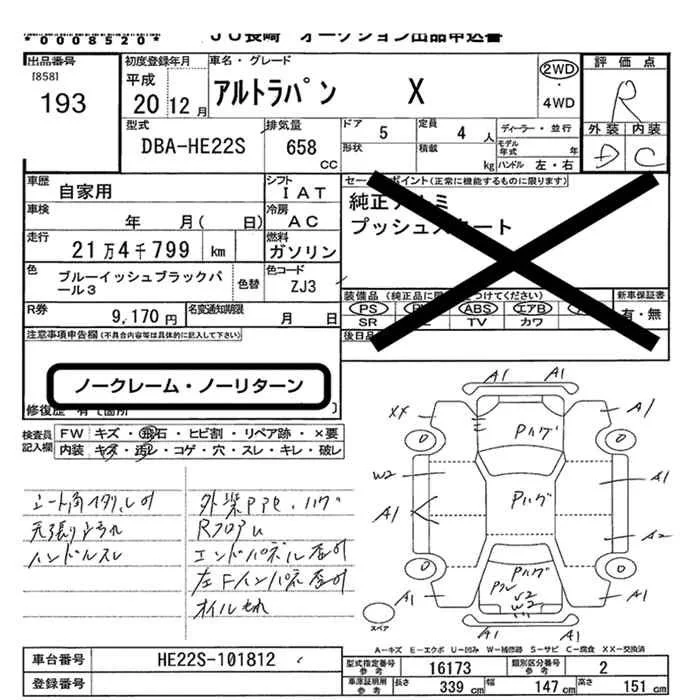 *0008520*
JU長崎 オークション出品申込書
出品番号 初度登録年月 車名・グレード 評価点
[858] 193 平成 20年 12月 アルトラパン X 2WD・4WD R
型式 DBA-HE22S 排気量 658 CC
ドア 5 定員 4人 ディーラー・並行 外装 内装
形状 積載 kg モデル年式 年 ハンドル 左・右 D C
車歴 自家用 シフト IAT セールスポイント(正常に機能するものに限ります)
車検 年 月( 日) 冷房 AC 純正アルミ
走行 21万4千799 km 燃料 ガソリン プッシュスタート
色 ブルーイッシュブラックパール3 色替 色コード ZJ3
R券 9,170円 名変通知期限 月 日
装備品(純正品に限 をつけてください) 新車保証書
PS ABS エアB 有・無
SR TV カワ
注意事項申告欄(不具合内容等は具体的に記入して下さい) 後日品
ノークレーム・ノーリターン
修復歴 有 箇所
検査員記入欄 FW キズ・飛石・ヒビ割・リペア跡・×要
内装 キズ・汚レ・コゲ・穴・スレ・キレ・破レ
天張り
ハンドルスレ
Rフロア
エンドパネル
オイルもれ
A1 A1
XX A1
Pハゲ
W2 Pハゲ A1
A1 A2
Pハゲ
A1 W2 A1
A1 A1
スペア
A-キズ E-エクボ U-凹み W-補修跡 S-サビ C-腐食 XX-交換済
車台番号 HE22S-101812
登録番号
型式指定番号 参考 16173 類別区分番号 参考 2
車庫証明用 参考 長さ 339 cm 幅 147 cm 高さ 151 cm